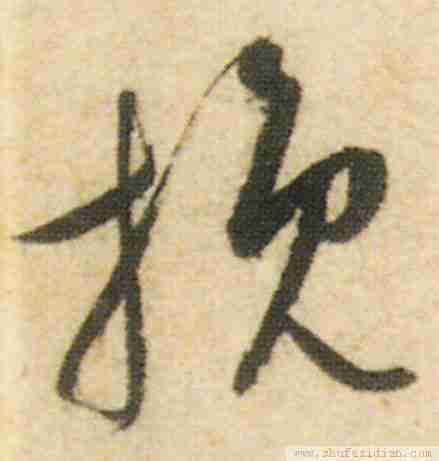 換
www.shufazidian.com